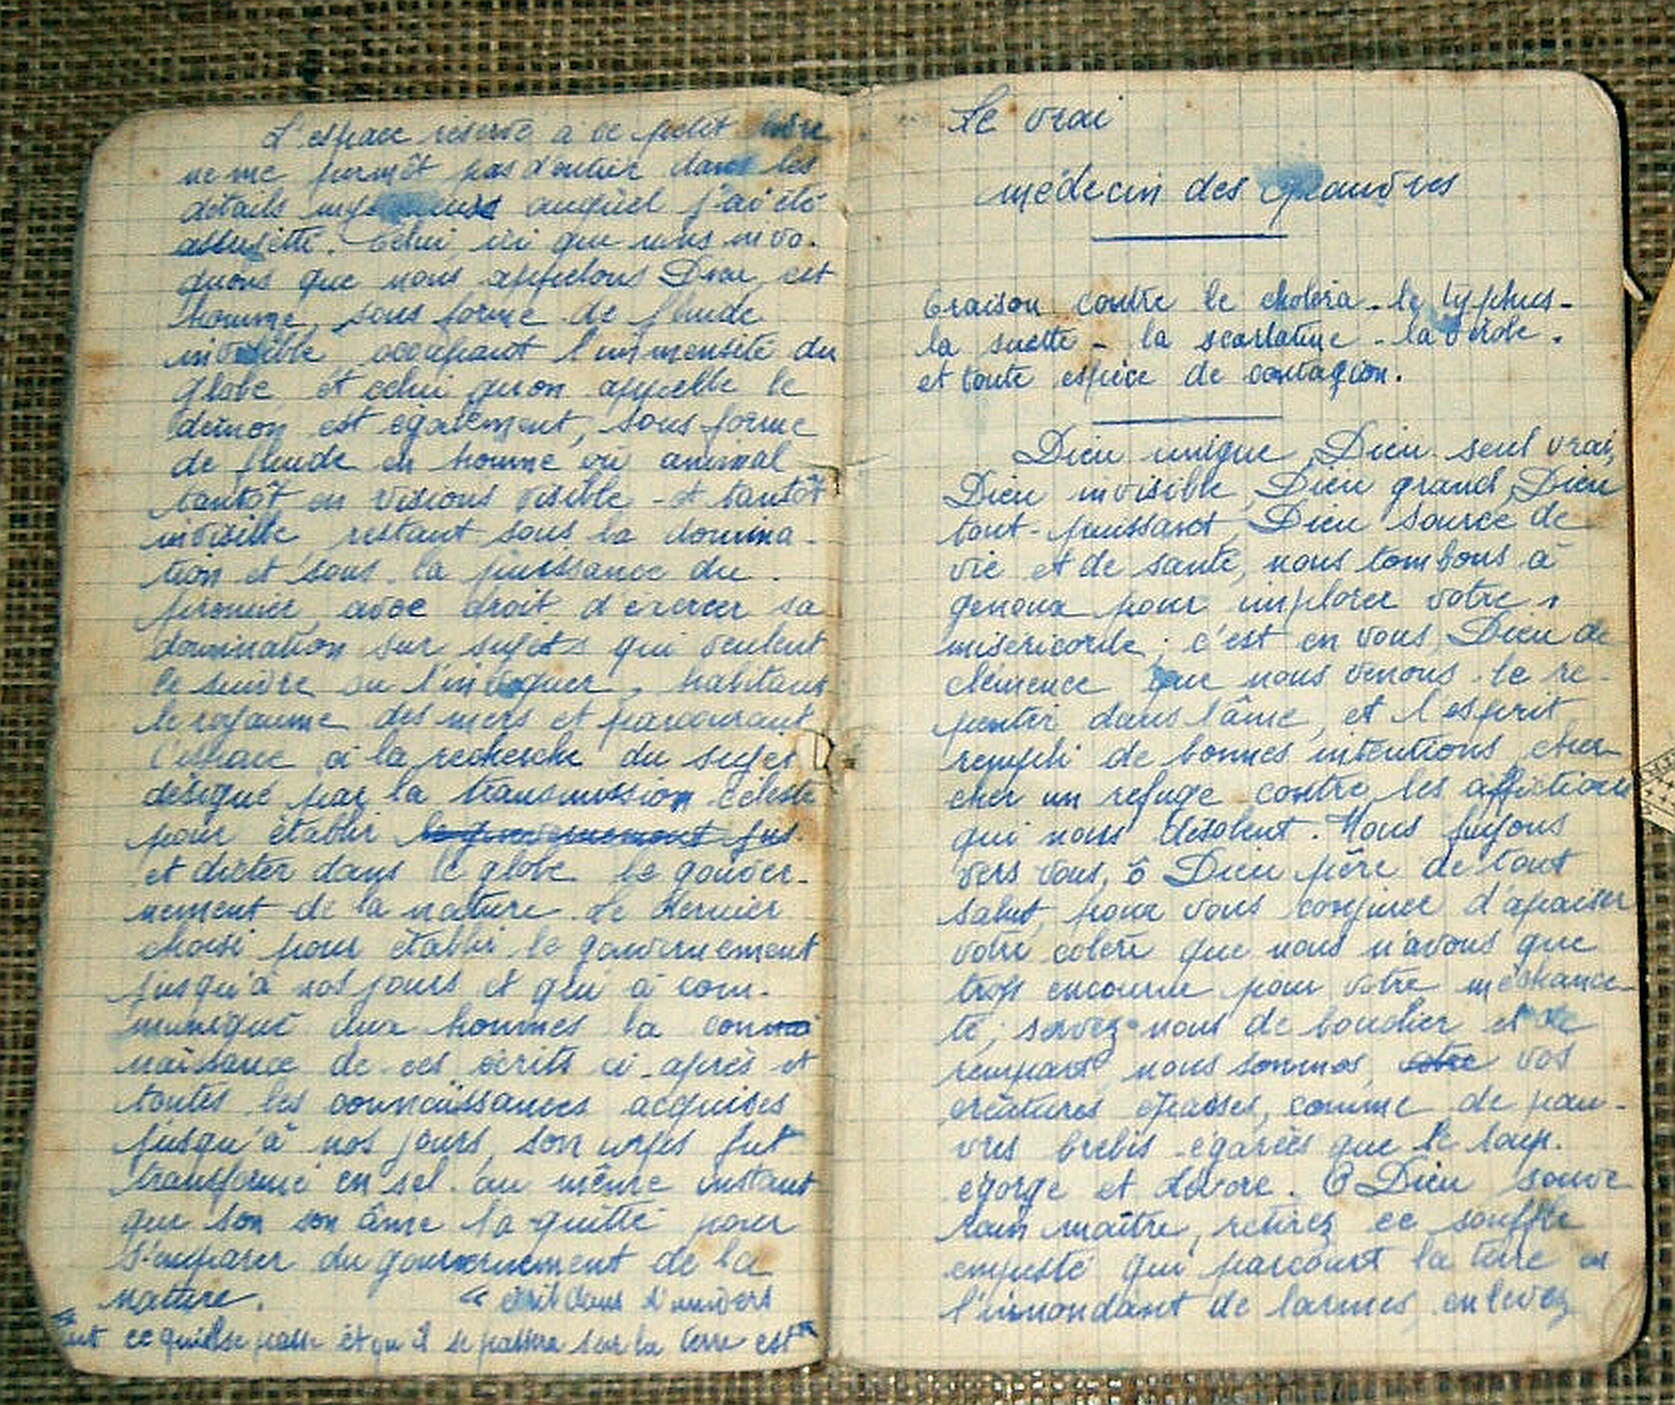 L'espace réservé à ce petit livre
ne me permêt pas d'entrer dans les
détails auquel j'ai été
assujetté. Celui, ici que nous invo-
quons que nous appellons Dieu, est
homme, sous forme de fluide
invisible occupant l'immensité du
globe et celui qu'on appelle le
démon est également, sous forme
de fluide en homme ou animal
tantôt en visions visible - et tantôt
invisible restant sous la domina-
tion et sous la puissance du
premier, avec droit d'exercer sa
domination sur sujets qui veulent
le suivre ou l'invoquer, habitant
le royaume des mers et parcourant
l'espace à la recherche du sujet
désigné par la transmission céleste
pour établir le gouvernement jus.
et dicter dans le globe le gouver-
nement de la nature. Le dernier
choisi pour établir le gouvernement
jusqu'à nos jours et qui à com-
muniqué aux hommes la connai
naissance de ces écrits ci-après et
toutes les connaissances acquises
jusqu'à nos jours, son corps fut
transformé en sel au même instant
que son son âme la quitté pour
s'emparer du gouvernement de la
nature. « écrit dans l'univers
tout ce qui se passe et qu'il se passera sur la terre est
Le vrai
médecin des pauvres
Oraison contre le choléra - le typhus -
la suette - la scarlatine - la vérole.
et toute espèce de contagion.
Dieu unique, Dieu seul vrai,
Dieu invisible, Dieu grand, Dieu
tout-puissant, Dieu source de
vie et de santé, nous tombons à
genoux pour implorer votre
miséricorde ; c'est en vous, Dieu de
clémence que nous venons le re-
pentir dans l'âme, et l'esprit
rempli de bonnes intentions, cher-
cher un refuge contre les afflictions
qui nous désolent. Nous fuyons
vers vous, ô Dieu père de tout
salut, pour vous conjurer d'apaiser
votre colère que nous n'avons que
trop encourue pour votre méchance-
té ; servez-nous de bouclier et de
rempart nous sommes, vos
créatures éparses, comme de pau-
vres brebis égarées que le loup.
égorge et dévore. O Dieu souve
rain maître, retirez ce souffle
empesté qui parcourt la terre en
l'innondant de larmes, enlevez